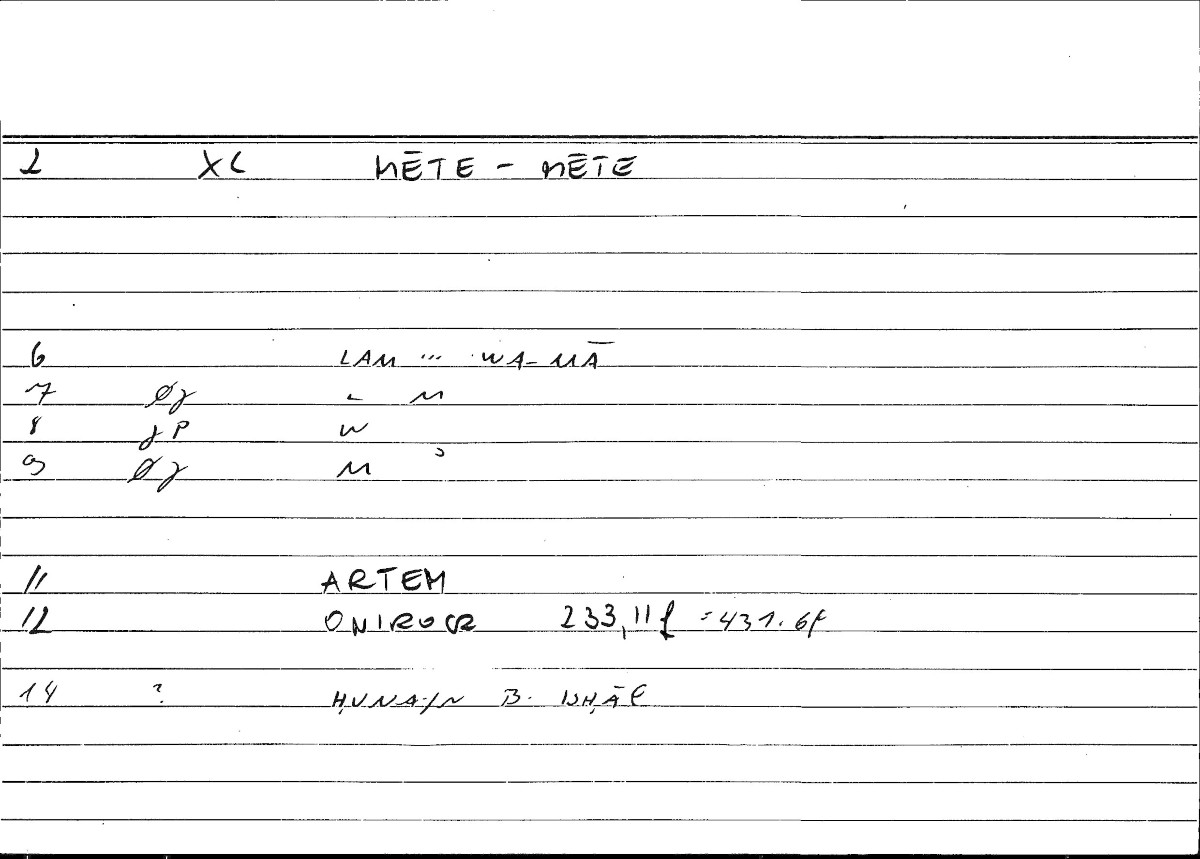 2 XL MĒTE - MĒTE
6 LAM ... WA-MĀ
7 Øγ L M
8 γP W
9 Øγ M
11 ARTEM
12 ONIROCR 233,11f = 431.6f
14 ? ḤUNAIN B. ISḤĀḲ